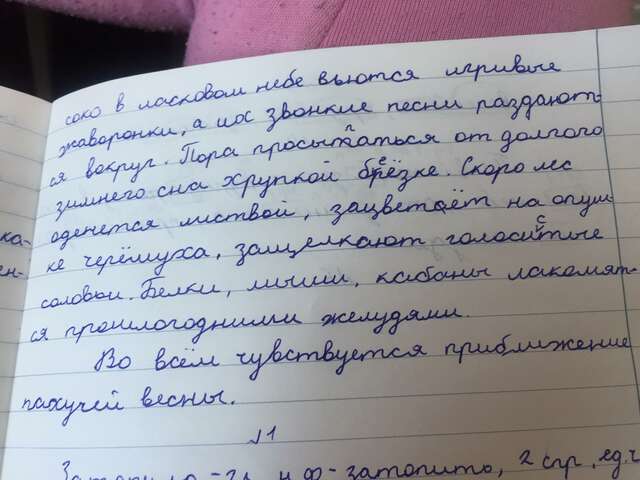 соко в ласковом небе вьются игривые
жаворонки, а их звонкие песни раздают-
ся вокруг. Пора просыпаться от долгого
зимнего сна хрупкой берёзке. Скоро лес
оденется листвой, зацветёт на опуш-
ке черёмуха, защелкают голосистые
соловьи. Белки, мыши, кабаны лакомят-
ся прошлогодними желудями.
Во всём чувствуется приближение
пахучей весны.
ка-
ен-
№1
Затопило - гл., н.ф - затопить, 2 спр, ед.ч